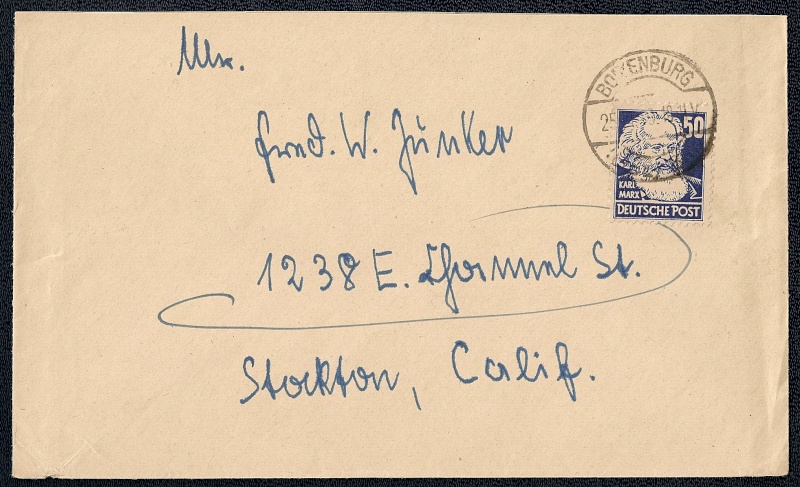 Mr.
BOIZENBURG
25
50
KARL
MARX
DEUTSCHE POST
Fred. W. Junker
1238 E. Channel St.
Stockton, Calif.